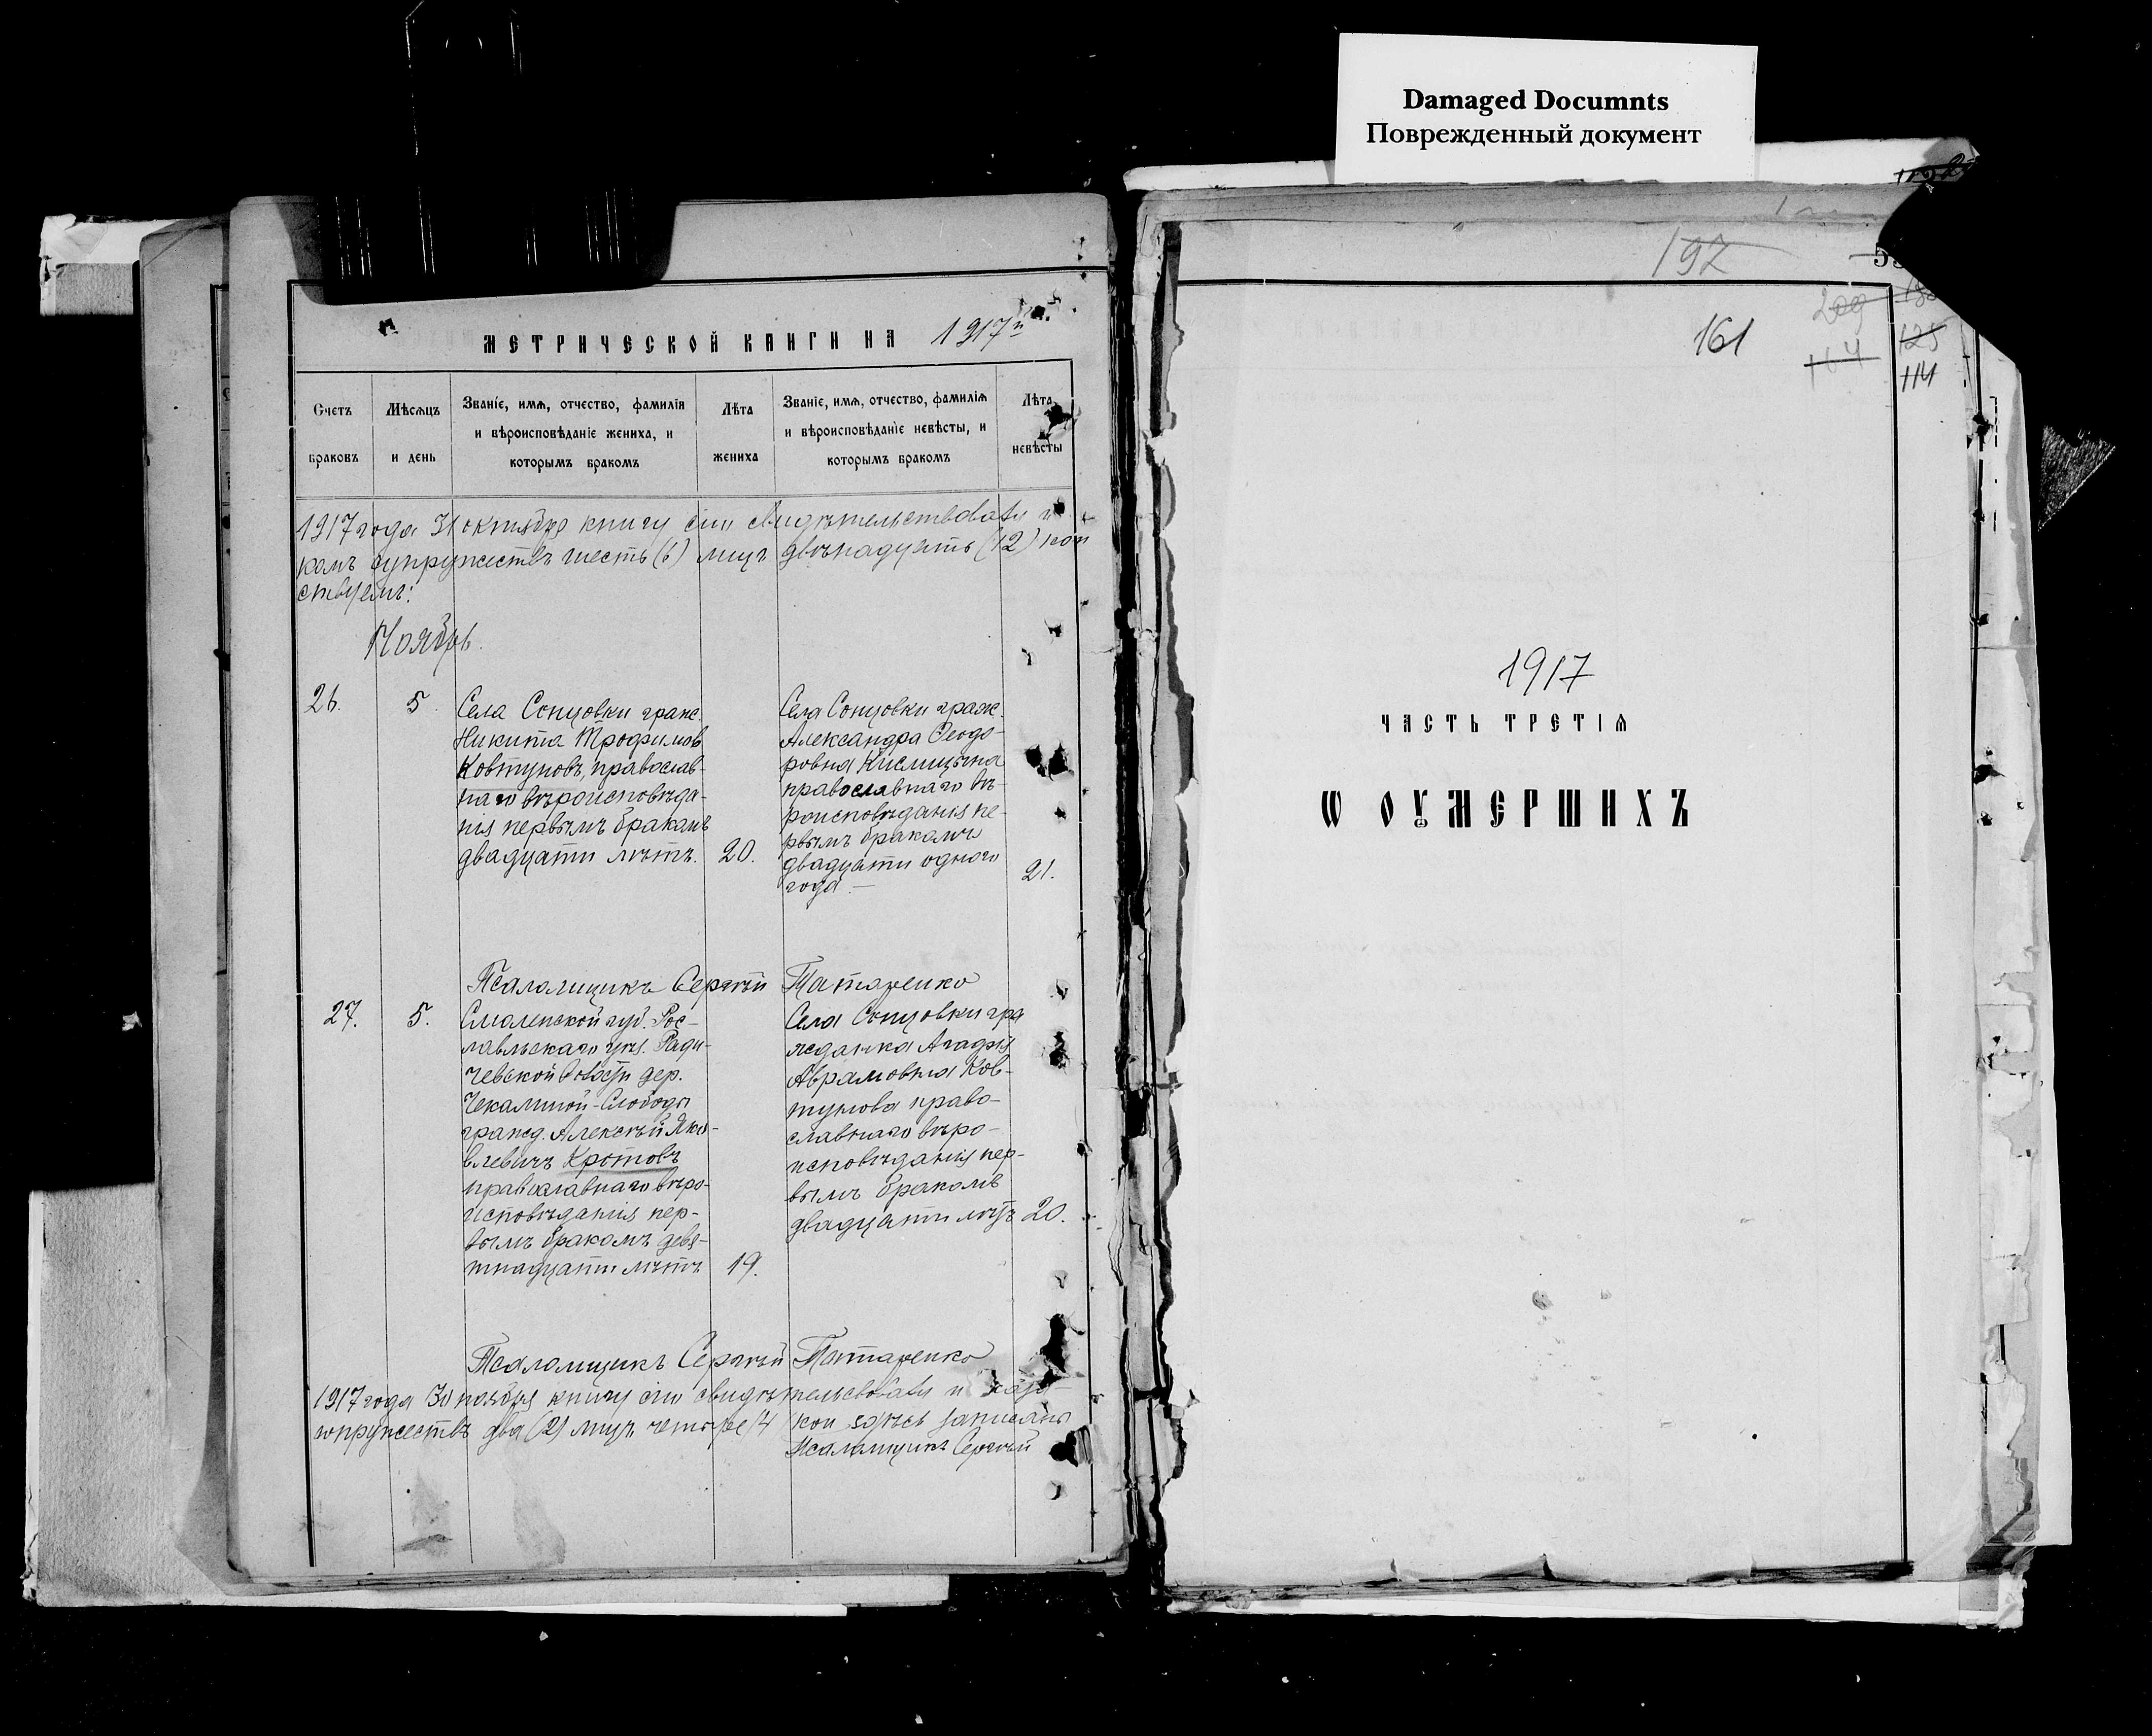 Damaged Documnts
Поврежденный документ
МЕТРИЧЕСКОЙ КНИГИ НА 1917
Счетъ браковъ
Мѣсяцъ и день
Званіе, имѧ, отчество, фамиліѧ
и вѣроисповѣданіе жениха, и
которымъ бракомъ
Лѣта жениха
Званіе, имѧ, отчество, фамиліѧ
и вѣроисповѣданіе невѣсты, и
которымъ бракомъ
Лѣта невѣсты
1917 года 31 октября книгу сію свидѣтельствовали и
комъ супружествъ шесть (6) лицъ двѣнадцать (12) кои
ствуемъ:
Ноябрь.
26.
5.
Села Сонцовки гражд.
Никита Трофимов
Ковтуновъ, православ-
наго вѣроисповѣда-
нія первымъ бракомъ
двадцати лѣтъ.
20.
Села Сонцовки гражд.
Александра Ѳеодо-
ровна Кислицына
православнаго вѣ-
роисповѣданія пе-
рвымъ бракомъ
двадцати одного
года
21.
Псаломщикъ Сергѣй Татаренко
27.
5.
Смоленской губ. Рос-
лавльскаго уѣз.
дер.
гражд. Алексѣй Яко-
влевичъ Кротовъ
православнаго вѣро-
исповѣданія пер-
вымъ бракомъ девя-
тнадцати лѣтъ
19.
Села Сонцовки гра
жданка Агафія
Аврамовна Ков-
тунова право-
славнаго вѣро-
исповѣданія пер-
вымъ бракомъ
двадцати лѣтъ
20.
Псаломщикъ Сергѣй Татаренко
1917 года 30 ноября книгу сію свидѣтельствовали и
супружествъ два (2) лицъ четыре (4 кои здѣсь записаны
Псаломщикъ Сергѣй
192
161
209
164
125
114
1917
ЧАСТЬ ТРЕТІѦ
Ѡ ОУМЕРШИХЪ